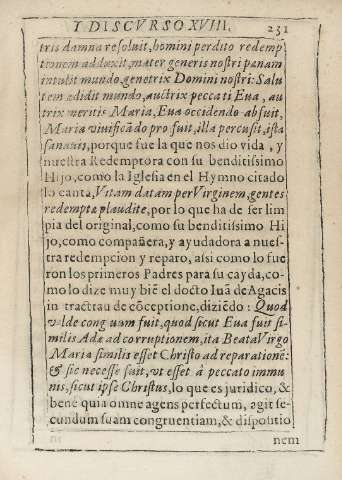 Y DISCVRSO XVIII. 231
tris damna resoluit, homini perdito redemp
tionem adduxit, mater generis nostri pœnam
intulit mundo, genetrix Domini nostri: Salu
tem ædidit mundo, auctrix peccati Eua, au
trix meritis Maria, Eua occidendo obfuit,
Maria viuificãdo profuit, illa percussit, ista
sanauit, porque fue la que nos dio vida, y
nuestra Redemptora con su benditissimo
Hijo, como la Iglesia en el Hymno citado
lo canta, Vitam datam per Virginem, gentes
redempta plaudite, por lo que ha de ser lim
pia del original, como su benditissimo Hi
jo, como compañera, y ayudadora a nues-
tra redempcion y reparo, asi como lo fue
ron los primeros Padres para su cayda, co-
mo lo dize muy biẽ el docto Iuã de Agacis
in tracttau de cõceptione, diziẽdo: Quod
valde congruum fuit, quod sicut Eua fuit si-
milis Adæ ad corruptionem, ita Beata Virgo
Maria similis esset Christo ad reparationẽ:
& sic necesse fuit, vt esset à peccato immu
nis, sicut ipse Christus, lo que es juridico, &
bene quia omne agens perfectum, agit se-
cundum suam congruentiam, & dispositio
nem